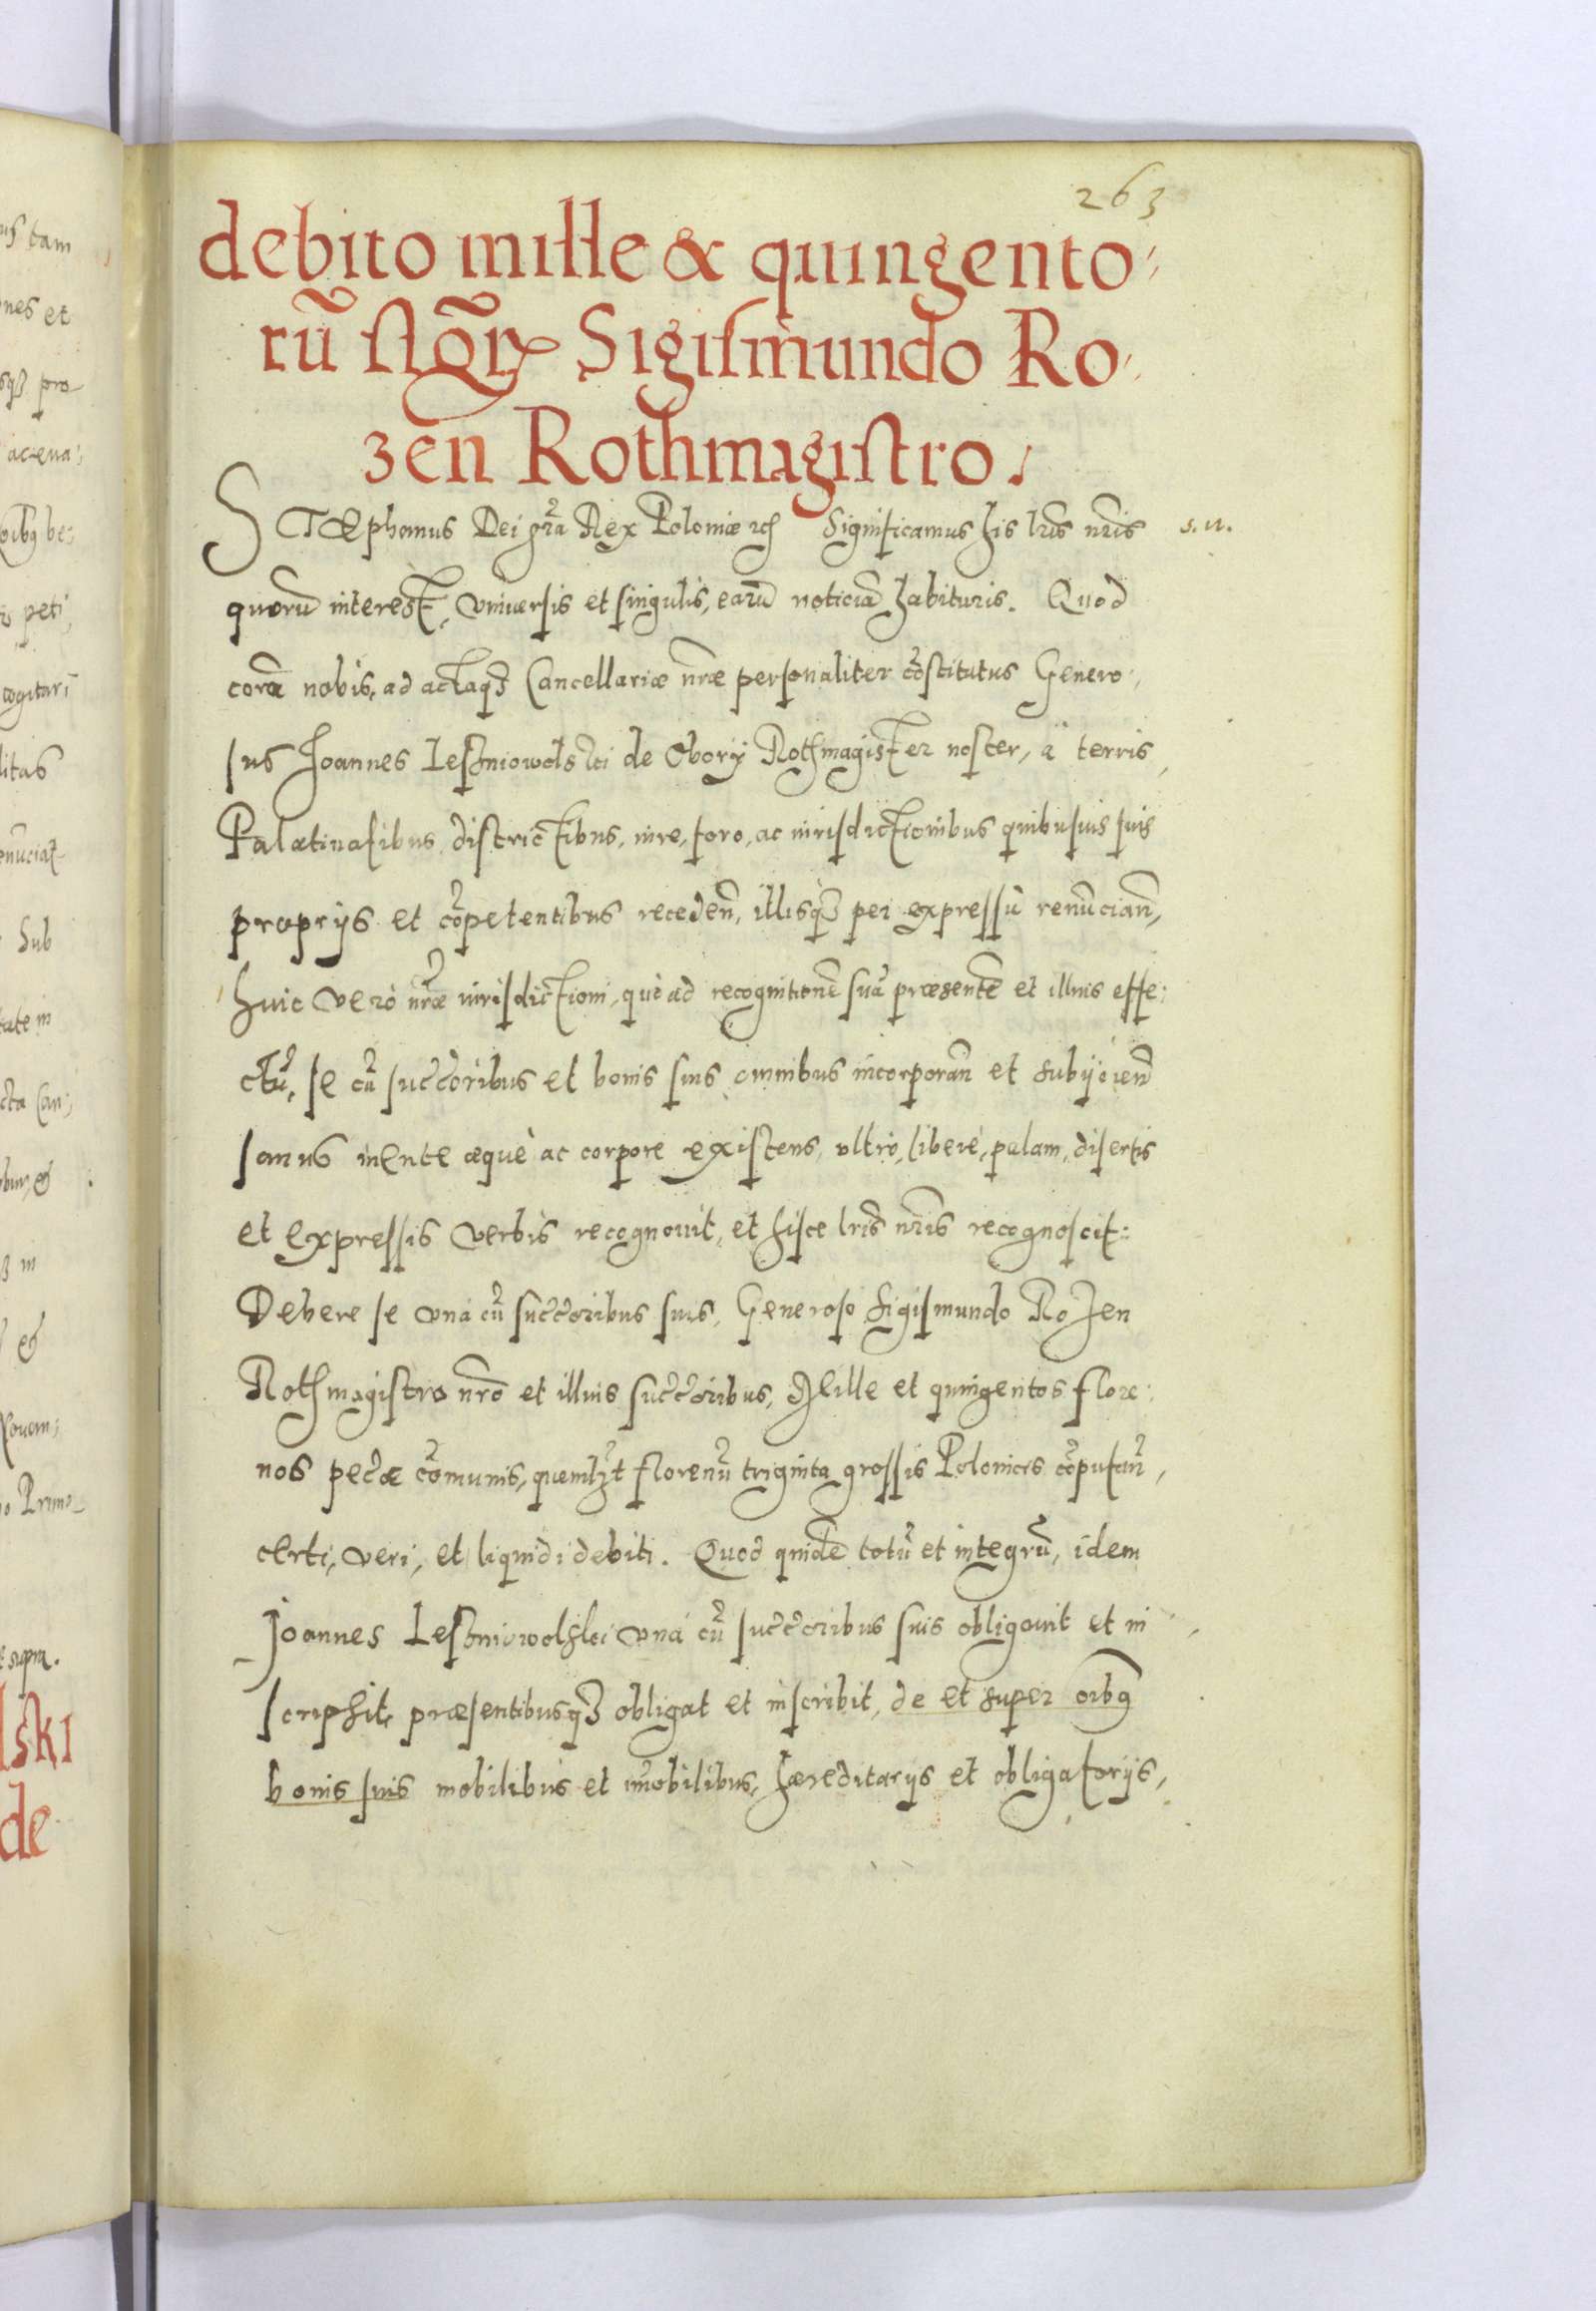 263
debito mille & quingento-
rũ flor Sigismundo Ro-
zen Rothmagistro.
STEphanus Dei grã Rex Poloniæ etc Significamus his lrĩs nrĩs s. n.
quorũ interest, vniuersis et singulis, earũ noticiã habituris. Quod
corã nobis, ad actaqz Cancellariæ nræ personaliter cõstitutus Genero-
sus Joannes Leszniowolski de Obory Rothmagister noster, à terris,
Palatinatibus districtibus, iure, foro, ac iurisdictionibus quibusuis suis
proprijs et cõpetentibus recedeñ, illisqz per expressũ renũciañ,
huic verò nræ iurisdictioni, quò ad recognitionẽ suã præsentẽ et illius effe-
ctũ, se cũ succoribus et bonis suis omnibus incorporañ et subijcieñ
sanus mente æquè ac corpore existens, vltrò, liberè, palam, disertis
et expressis verbis recognouit, et hisce lrĩs nrĩs recognoscit:
Debere se vnà cũ succoribus suis, Generoso Sigismundo Rozen
Rothmagistro nrõ et illius succoribus, Mille et quingentos flore-
nos pecæ cõmunis, quemlzt florenũ triginta grossis Polonicis cõputañ,
certi, veri, et liquidi debiti. Quod quidẽ totũ et integrũ, idem
Joannes Leszniowolski vnà cũ succoribus suis obligauit et in
scripsit, præsentibusqz obligat et inscribit, de et super oĩbq
bonis suis mobilibus et ĩmobilibus, hæreditarijs et obligatorijs,